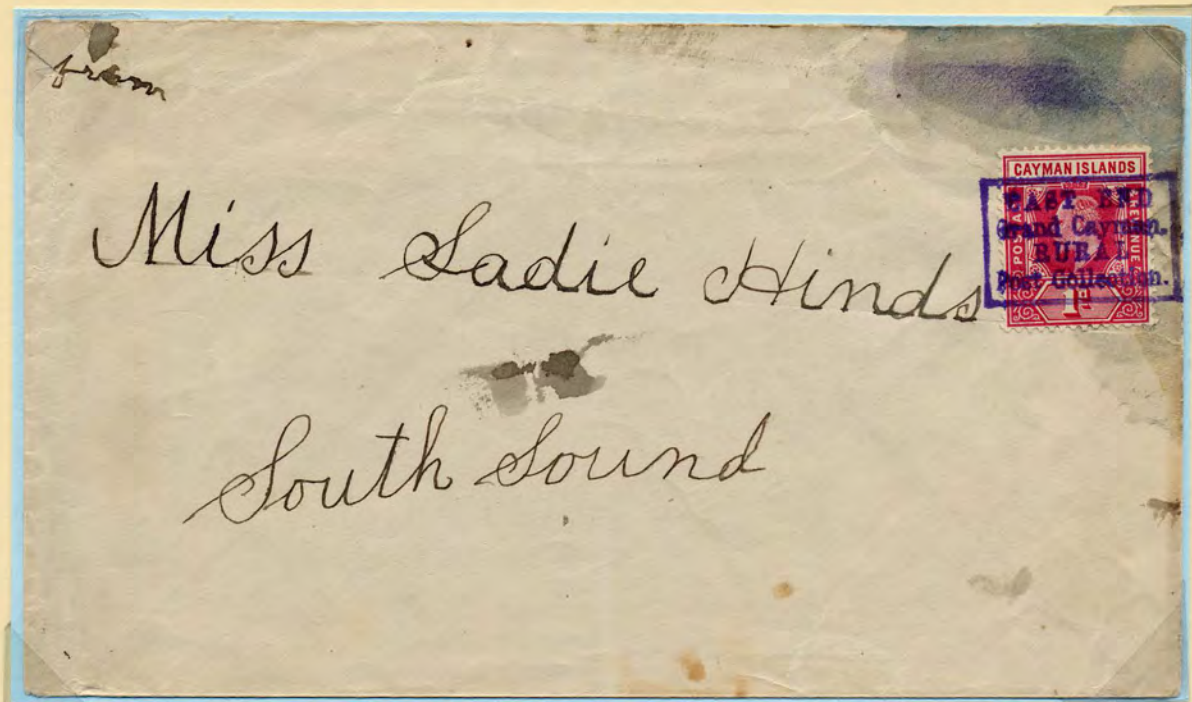 from
Miss Sadie Hinds
South Sound
CAYMAN ISLANDS
POSTAGE
REVENUE
1d
EAST END
Grand Cayman.
RURAL
Post Collection.